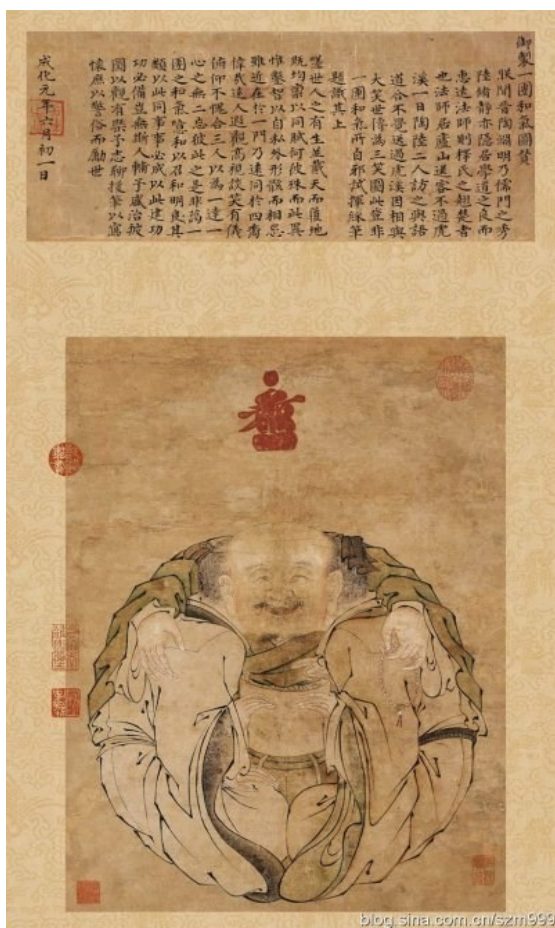 御製一團和氣圖贊
朕聞晉陶淵明乃儒門之秀
陸脩靜亦隱居學道之良而
惠遠法師則釋氏之翹楚者
也法師居廬山送客不過虎
溪一日陶陸二人訪之與語
道合不覺送過虎溪因相與
大笑世傳為三笑圖此豈非
一團和氣所自邪試揮綵筆
題識其上
嗟世人之有生並戴天而履地
既均稟以同賦何彼殊而此異
惟鑿智以自私外形骸而相忌
雖近在於一門乃遠同於四裔
偉哉達人遐觀高視談笑有儀
俯仰不愧合三人以為一達一
心之無二忘彼此之是非藹一
團之和氣噫和以召和明良其
類以此同事事必成以此建功
功必備豈無斯人輔予盛治披
圖以觀有槩予志聊援筆以寫
懷庶以警俗而勵世
成化元年六月初一日
blog.sina.com.cn/szm999